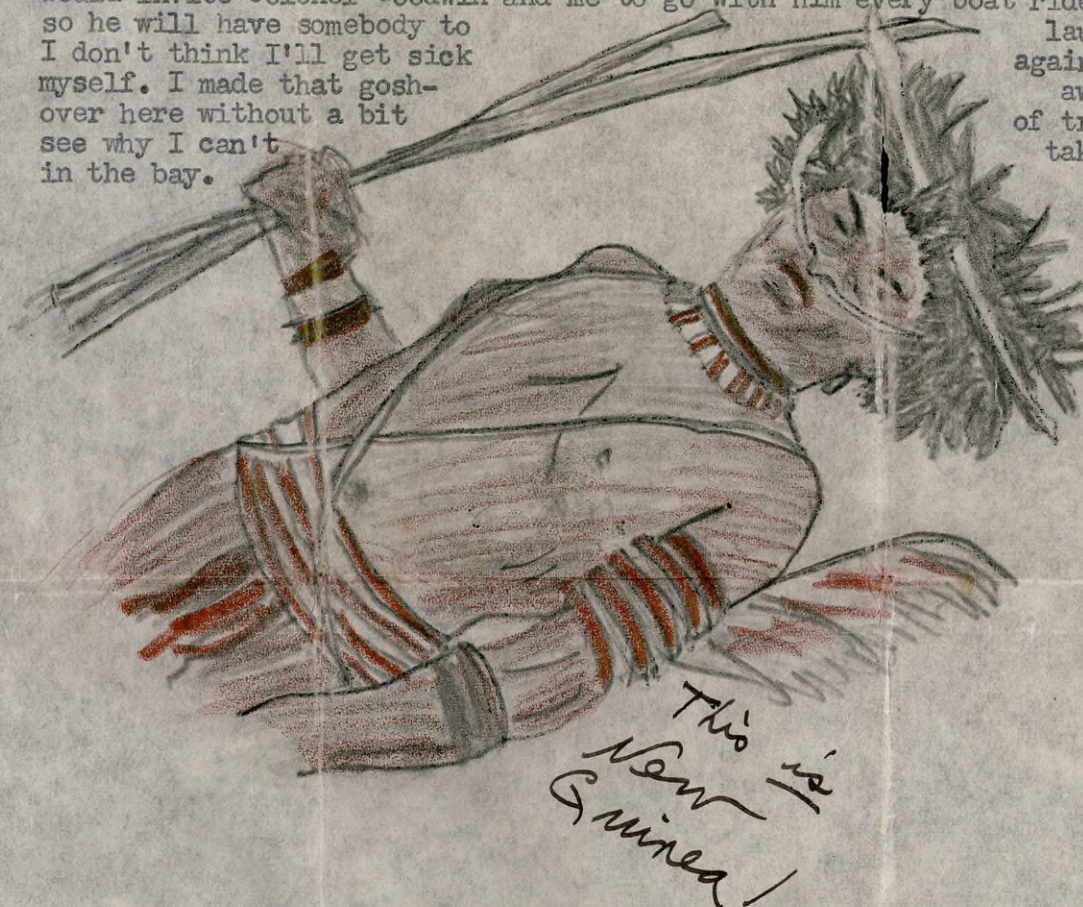 and me to go with him every boat ride
so he will have somebody to
I don't think I'll get sick
myself. I made that gosh-
over here without a bit
see why I can't
in the bay.
lau
again
aw
of tr
tak
This is
New
Guinea!